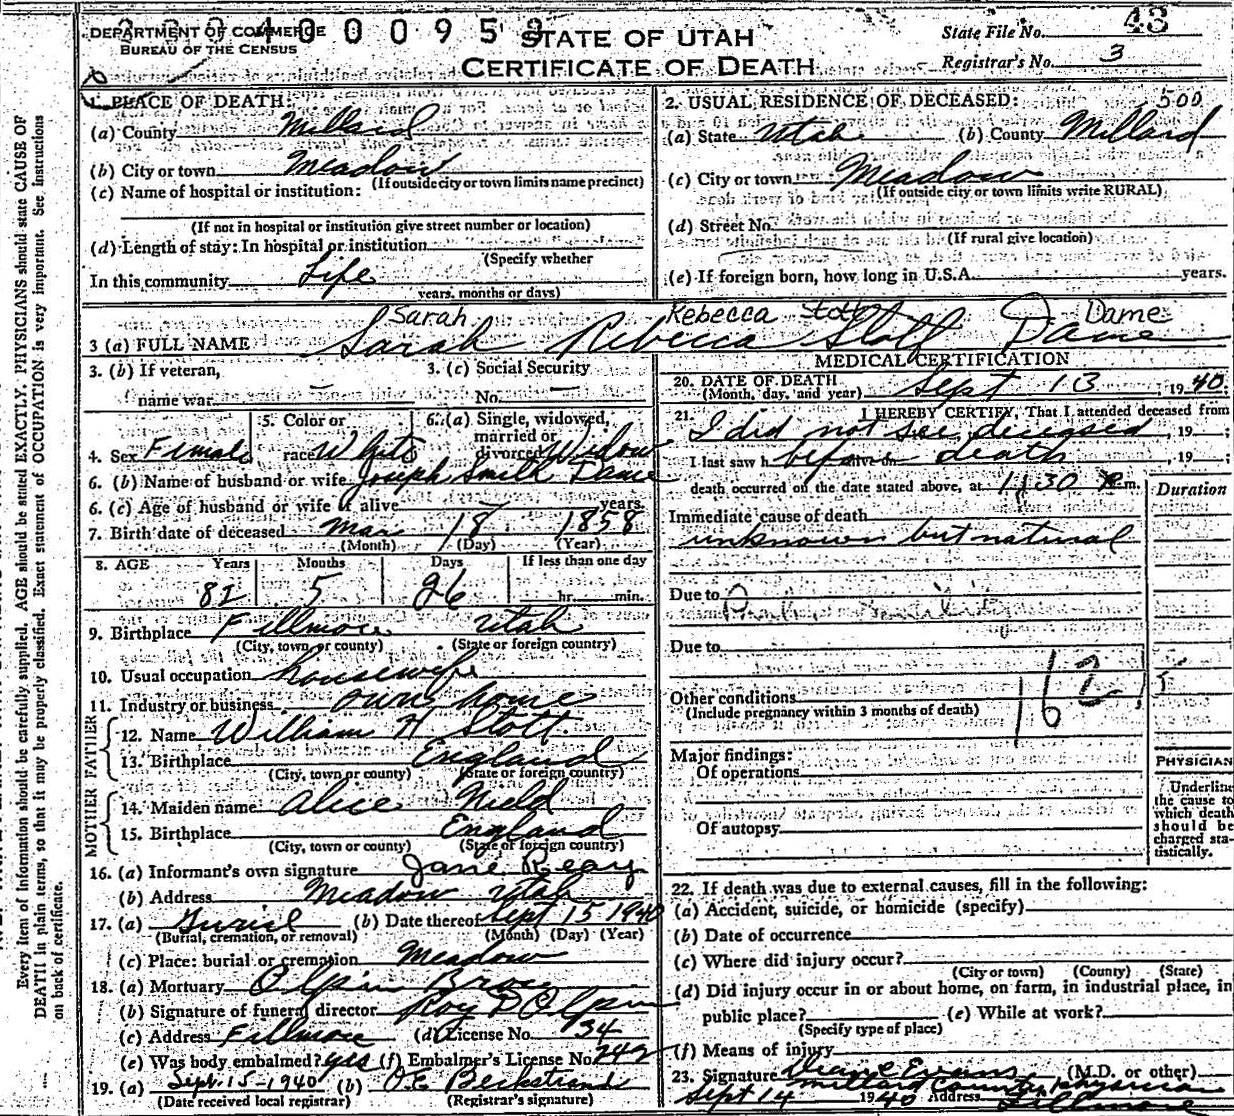 DEPARTMENT OF COMMERCE
BUREAU OF THE CENSUS
STATE OF UTAH
CERTIFICATE OF DEATH
State File No. 43
Registrar's No. 3
1. PLACE OF DEATH:
(a) County Millard
(b) City or town Meadow
(If outside city or town limits name precinct)
(c) Name of hospital or institution:
(If not in hospital or institution give street number or location)
(d) Length of stay: In hospital or institution
(Specify whether
In this community Life
years, months or days)
2. USUAL RESIDENCE OF DECEASED: 500
(a) State Utah (b) County Millard
(c) City or town Meadow
(If outside city or town limits write RURAL)
(d) Street No.
(If rural give location)
(e) If foreign born, how long in U.S.A. years.
Sarah Rebecca Stott Dame
3 (a) FULL NAME Sarah Rebecca Stott Dame
3. (b) If veteran,
name war —
3. (c) Social Security
No. —
4. Sex Female
5. Color or
race White
6. (a) Single, widowed,
married or
divorced Widow
6. (b) Name of husband or wife Joseph Smith Dame
6. (c) Age of husband or wife if alive years.
7. Birth date of deceased Mar 18 1858
(Month) (Day) (Year)
8. AGE Years Months Days If less than one day
82 5 26 hr. min.
9. Birthplace Fillmore Utah
(City, town or county) (State or foreign country)
10. Usual occupation housewife
11. Industry or business own home
FATHER
12. Name William H Stott
13. Birthplace England
(City, town or county) (State or foreign country)
MOTHER
14. Maiden name Alice Nield
15. Birthplace England
(City, town or county) (State or foreign country)
16. (a) Informant's own signature Jane Reay
(b) Address Meadow Utah
17. (a) Burial (b) Date thereof Sept 15 1940
(Burial, cremation, or removal) (Month) (Day) (Year)
(c) Place: burial or cremation Meadow
18. (a) Mortuary Olpin Bros
(b) Signature of funeral director Roy P Olpin
(c) Address Fillmore (d) License No. 34
(e) Was body embalmed? yes (f) Embalmer's License No. 242
19. (a) Sept. 15-1940 (b) O.E. Beckstrand
(Date received local registrar) (Registrar's signature)
MEDICAL CERTIFICATION
20. DATE OF DEATH
(Month, day, and year) Sept 13, 1940.
21. I HEREBY CERTIFY, That I attended deceased from
I did not see deceased, 19 ;
I last saw h alive on before death, 19 ;
death occurred on the date stated above, at 11:30 m.
Duration
Immediate cause of death
unknown but natural
Due to
Due to
162
Other conditions
(Include pregnancy within 3 months of death)
Major findings:
Of operations
Of autopsy
PHYSICIAN
Underline
the cause to
which death
should be
charged sta-
tistically.
22. If death was due to external causes, fill in the following:
(a) Accident, suicide, or homicide (specify)
(b) Date of occurrence
(c) Where did injury occur?
(City or town) (County) (State)
(d) Did injury occur in or about home, on farm, in industrial place, in
public place? (e) While at work?
(Specify type of place)
(f) Means of injury
23. Signature Evans (M.D. or other)
Millard County physician
Sept 14 1940 Address Fillmore
Every item of information should be carefully supplied. AGE should be stated EXACTLY. PHYSICIANS should state CAUSE OF
DEATH in plain terms, so that it may be properly classified. Exact statement of OCCUPATION is very important. See instructions
on back of certificate.